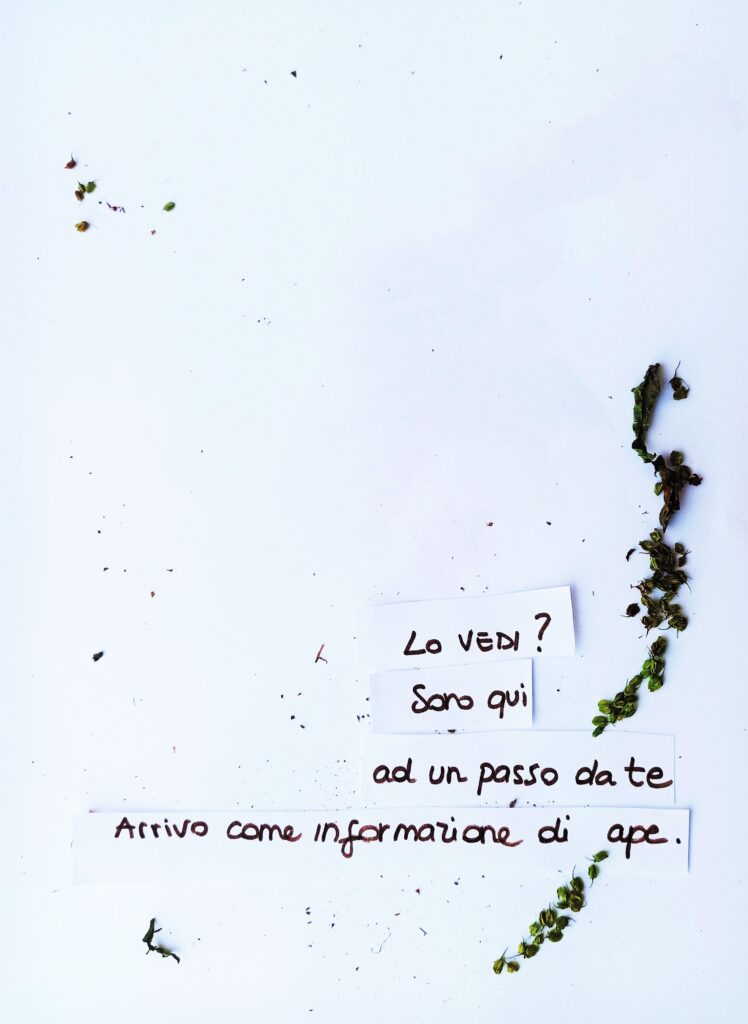 Lo VEDI?
Sono qui
ad un passo da te
Arrivo come informazione di ape.